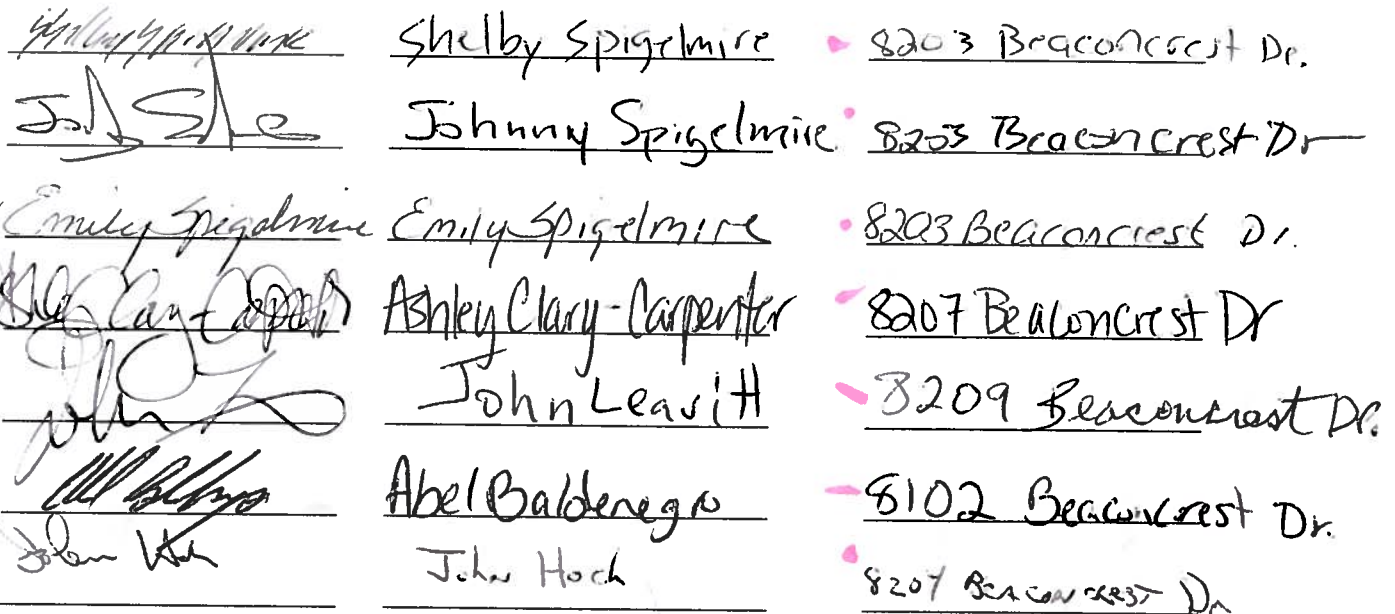 Shelby Spigelmire Shelby Spigelmire 8203 Beaconcrest Dr.
Johnny Spigelmire 8203 Beaconcrest Dr
Emily Spigelmire Emily Spigelmire 8203 Beaconcrest Dr.
Ashley Clary-Carpenter 8207 Beaconcrest Dr
John Leavitt 8209 Beaconcrest Dr.
Abel Baldenegro 8102 Beaconcrest Dr.
John Hoch 8207 Beaconcrest Dr